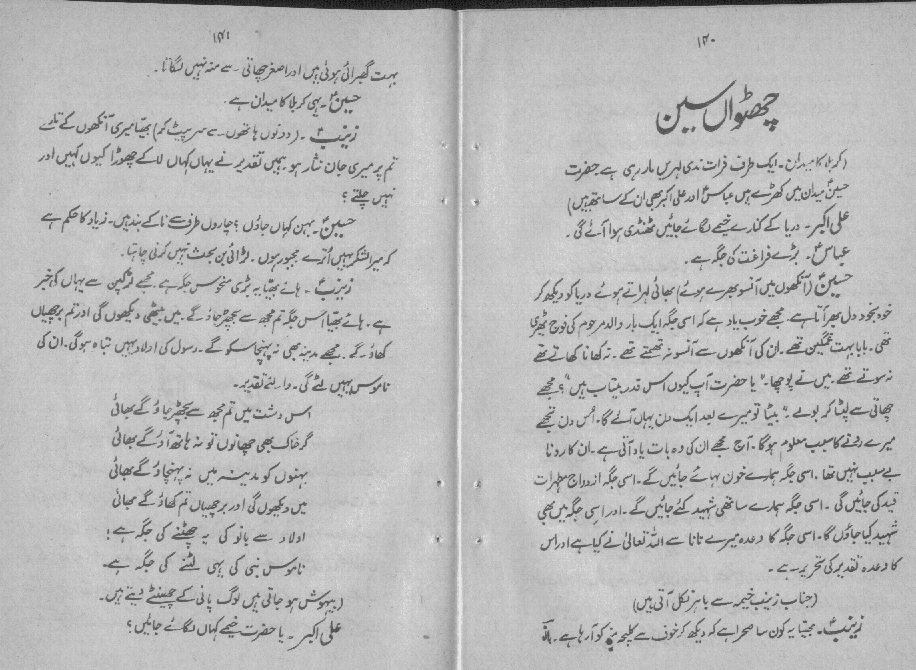 ۱۴۰
چھٹواں سین
(کربلا کا میدان۔ ایک طرف فرات ندی لہریں مار رہی ہے حضرت
حسینؑ میدان میں کھڑے ہیں عباسؑ اور علی اکبرؑ بھی ان کے ساتھ ہیں)
علی اکبر۔ دریا کے کنارے خیمے لگائے جائیں ٹھنڈی ہوا آئے گی۔
عباسؑ۔ بڑے فراغت کی جگہ ہے۔
حسینؑ (آنکھوں میں آنسو بھرے ہوئے) بھائی لہراتے ہوئے دریا کو دیکھ کر
خود بخود دل بھر آتا ہے۔ مجھے خوب یاد ہے کہ اسی جگہ ایک بار والد مرحوم کی فوج ٹھہری
تھی۔ بابا بہت غمگین تھے۔ ان کی آنکھوں سے آنسو نہ تھمتے تھے۔ نہ کھانا کھاتے تھے
نہ سوتے تھے۔ میں نے پوچھا۔ "یا حضرت آپ کیوں اس قدر بیتاب ہیں"؟ مجھے
چھاتی سے لپٹا کر بولے۔ "بیٹا تو میرے بعد ایک دن یہاں آئے گا۔ اُس دن تجھے
میرے رونے کا سبب معلوم ہوگا۔ آج مجھے ان کی وہ بات یاد آتی ہے۔ ان کا رونا
بے سبب نہیں تھا۔ اسی جگہ ہمارے خون بہائے جائیں گے۔ اسی جگہ ازدواج مطہرات
قید کی جائیں گی۔ اسی جگہ ہمارے ساتھی شہید کئے جائیں گے۔ اور اسی جگہ میں بھی
شہید کیا جاؤں گا۔ اسی جگہ کا وعدہ میرے نانا سے اللہ تعالیٰ نے کیا ہے اور اس
کا وعدہ تقدیر کی تحریر ہے۔
(جناب زینب خیمہ سے باہر نکل آتی ہیں)
زینبؑ۔ بھیّا یہ کون سا صحرا ہے کہ دیکھ کر خوف سے کلیجہ منہ کو آ رہا ہے۔ بانو
۱۴۱
بہت گھبرائی ہوئی ہیں اور اصغر چھاتی سے منہ نہیں لگاتا۔
حسینؑ۔ یہی کربلا کا میدان ہے۔
زینبؑ۔ (دونوں ہاتھوں سے سر پیٹ کر) بھیّا میری آنکھوں کے تارے
تم پر میری جان نثار ہو۔ ہمیں تقدیر نے یہاں کہاں لا کے چھوڑا کیوں کہیں اور
نہیں چلتے؟
حسینؑ۔ بہن کہاں جاؤں؟ چاروں طرف سے ناکے بند ہیں۔ زیاد کا حکم ہے
کہ میرا لشکر یہیں اُترے مجبور ہوں۔ لڑائی میں بحث نہیں کرنی چاہتا۔
زینبؑ۔ ہائے بھیّا یہ بڑی منحوس جگہ ہے۔ مجھے لڑکپن سے یہاں کی خبر
ہے۔ ہائے بھیّا اس جگہ تم مجھ سے بچھڑ جاؤ گے۔ میں بیٹھی دیکھوں گی اور تم برچھیاں
کھاؤ گے۔ مجھے مدینہ بھی نہ پہنچا سکو گے۔ رسول کی اولاد یہیں تباہ ہوگی۔ ان کی
ناموس یہیں لٹے گی۔ وائے تقدیر۔
اس دشت میں تم مجھ سے بچھڑ جاؤ گے بھائی
گر خاک بھی چھانوں تو نہ ہاتھ آؤ گے بھائی
بہنوں کو مدینہ میں نہ پہنچاؤ گے بھائی
میں دیکھوں گی اور برچھیاں تم کھاؤ گے بھائی
اولاد سے بانو کی یہ چھٹنے کی جگہ ہے؛
ناموس نبی کی یہی لٹنے کی جگہ ہے۔
(بیہوش ہو جاتی ہیں لوگ پانی کے چھینٹے دیتے ہیں۔
علی اکبر۔ یا حضرت خیمے کہاں لگائے جائیں؟